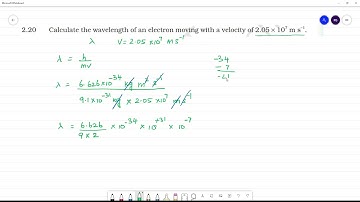 2.20 Calculate the wavelength of an electron moving with a velocity of 2.05 × 10⁷ m s⁻¹.
λ V = 2.05 × 10⁷ m s⁻¹
λ = h / mv
-34
- 7
-41
λ = 6.626 × 10⁻³⁴ kg m² s⁻¹ / 9.1 × 10⁻³¹ kg × 2.05 × 10⁷ m s⁻¹
λ = 6.626 / 9 × 2 × 10⁻³⁴ × 10⁺³¹ × 10⁻⁷